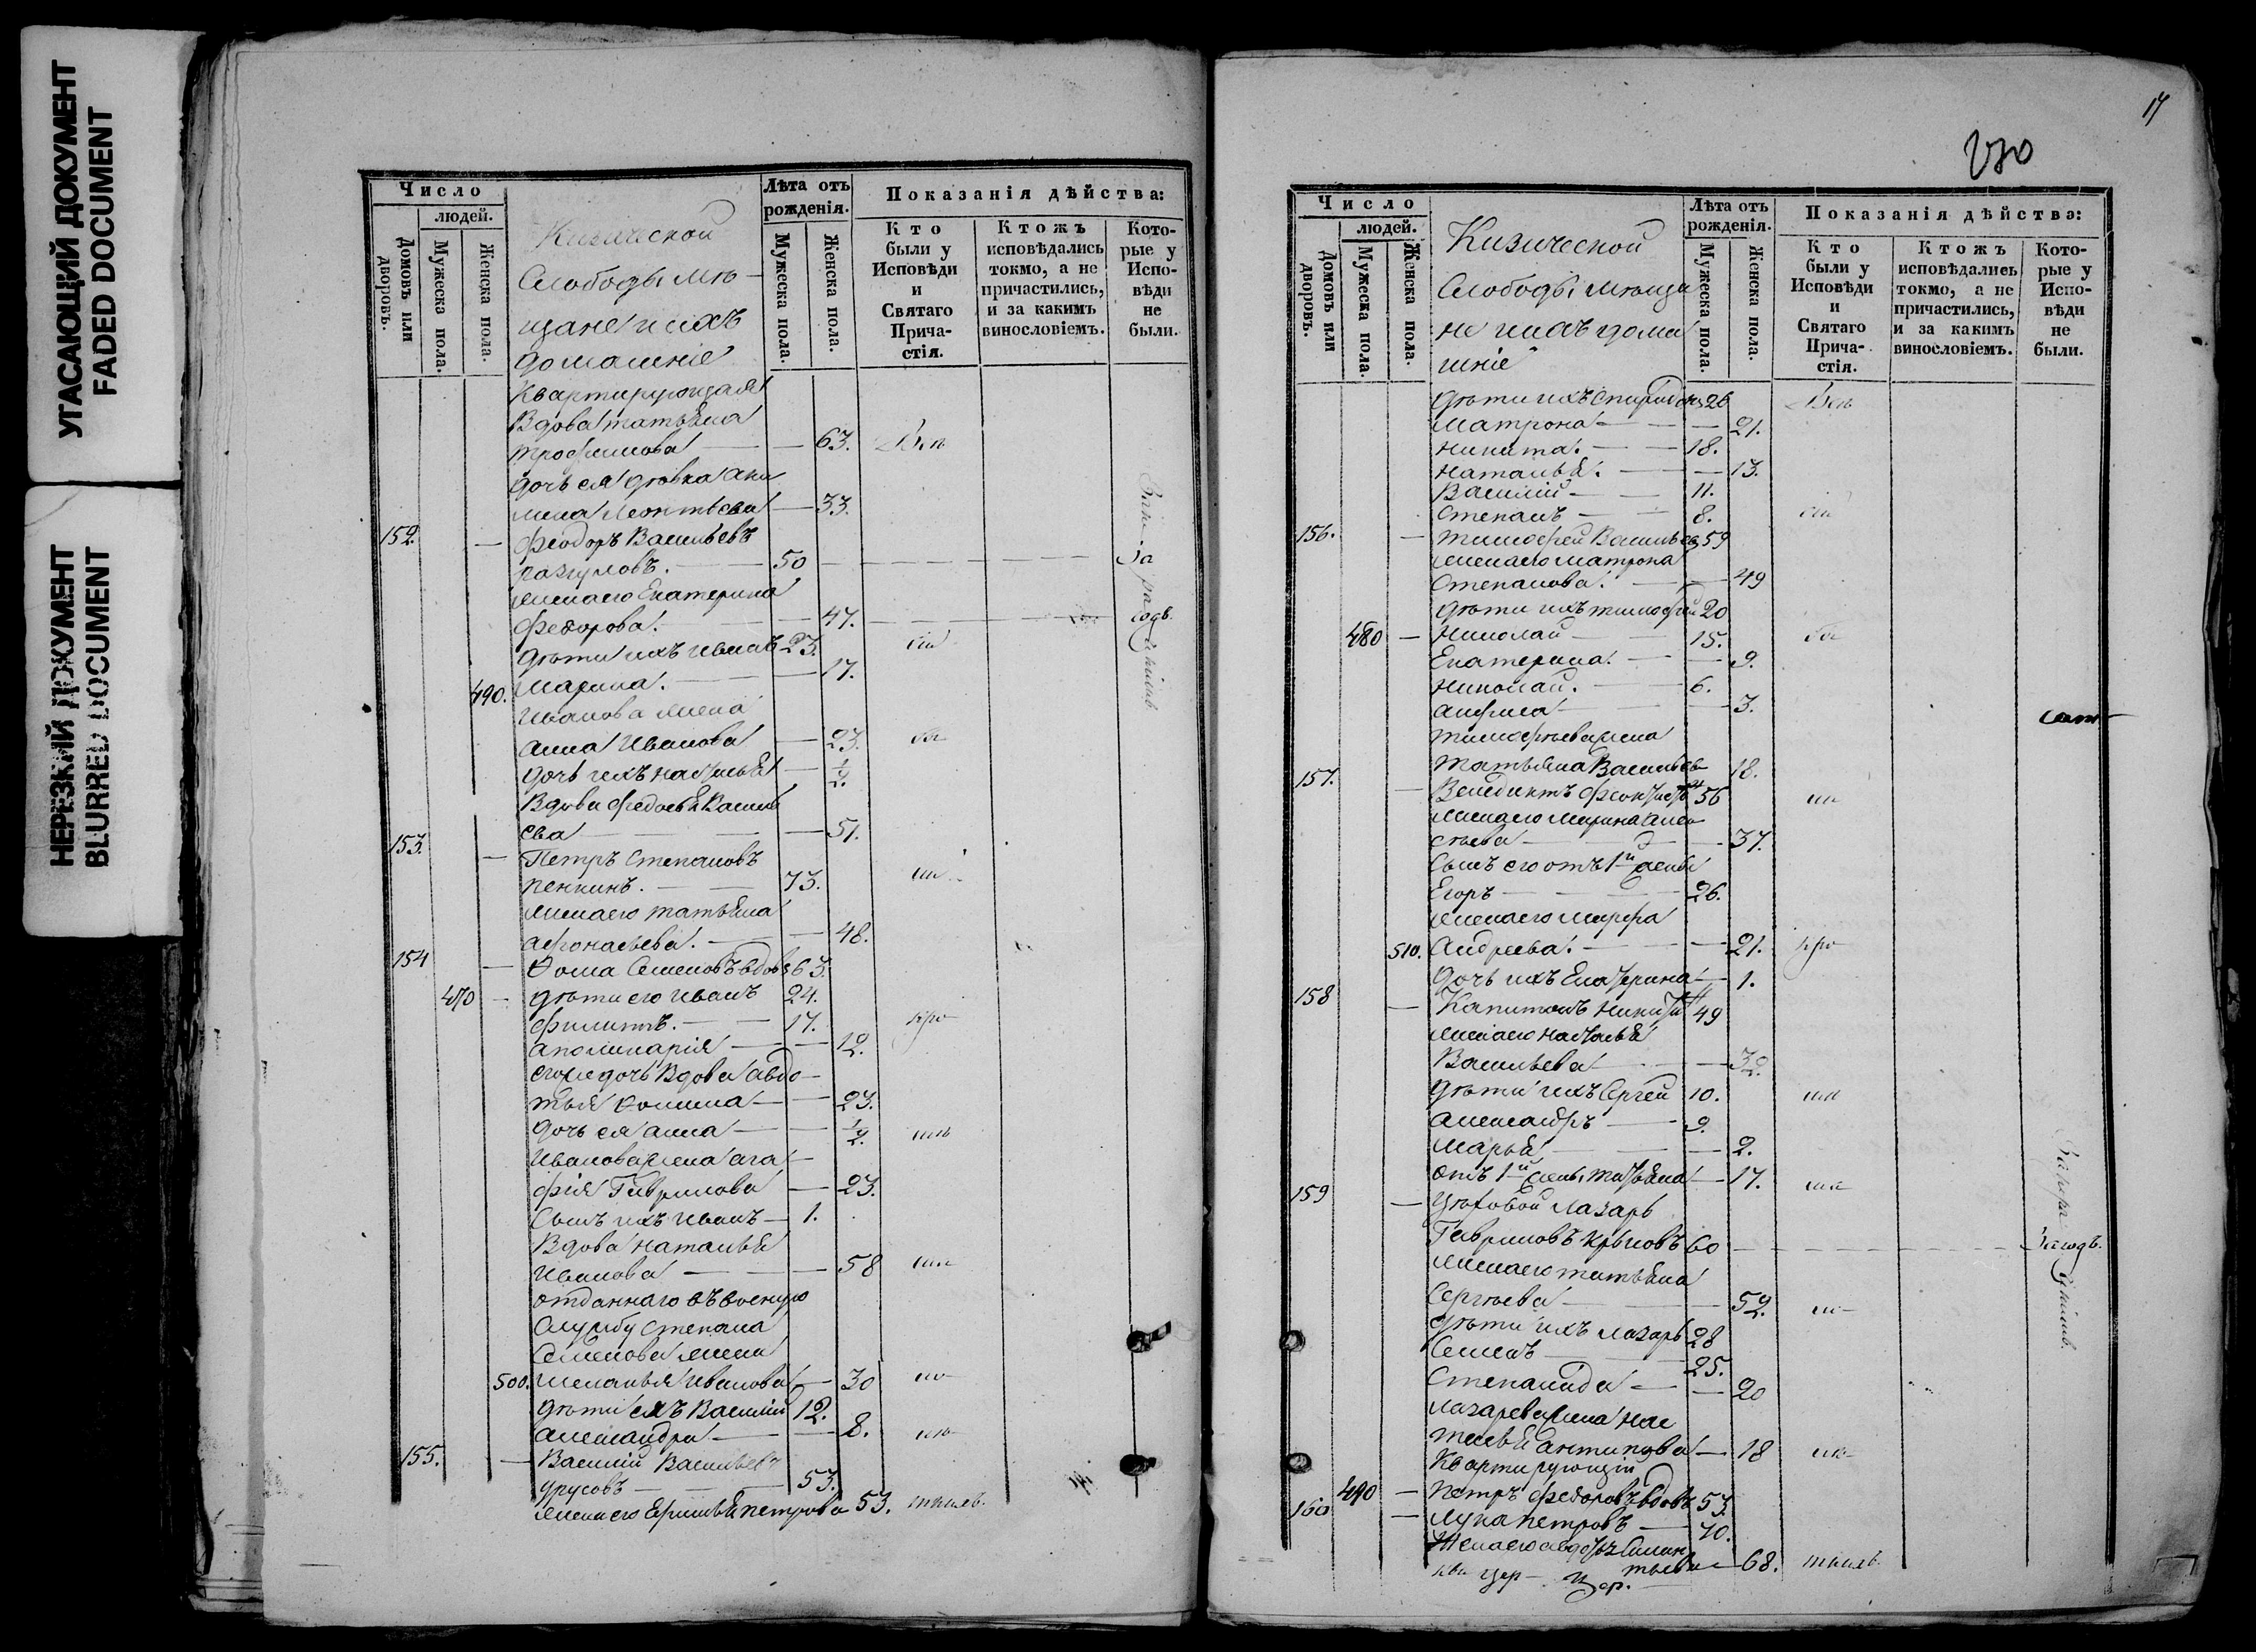 УГАСАЮЩИЙ ДОКУМЕНТ
FADED DOCUMENT
НЕРЕЗКИЙ ДОКУМЕНТ
BLURRED DOCUMENT
Число
людей.
Домовъ или дворовъ.
Мужеска пола.
Женска пола.
Кизической
Слободы мѣ-
щане и ихъ
домашніе
Лѣта отъ рожденія.
Мужеска пола.
Женска пола.
Показанія дѣйства:
Кто были у Исповѣди и Святаго Прича- стія.
Ктожъ исповѣдались токмо, а не причастились, и за какимъ винословіемъ.
Кото- рые у Испо- вѣди не были.
Квартирующая
Вдова татьяна
трофимова — 63.
дочь ея дѣвка аки
лина Леонтьева — 33.
152. — Феодоръ Васильевъ
разгуловъ. — 50
жена его Екатерина
федорова. — 47.
дѣти ихъ иванъ 23.
490. Марина. — 17.
Иванова жена
анна Иванова — 23.
дочь ихъ наталья — ½.
Вдова федосья Василь
ева — 51.
153. — Петръ Степановъ
пенкинъ. — 73.
жена его татьяна
афонасьева. — 48.
154 — Фома Семеновъ вдовъ 63.
470 — дѣти его Иванъ 24.
филиппъ. — 17.
аполинарія — 12.
его же дочь Вдова авдо-
тья Фомина — 23.
дочь ея анна — ½.
Иванова жена ага-
фія Гаврилова — 23.
Сынъ ихъ Иванъ — 1.
Вдова наталья
Иванова — 58
отданнаго въ военную
службу Степана
Семенова жена
500. меланья Иванова — 30
дѣти ихъ Василій 12.
александра — 8.
155. — Василій Васильевъ
урусовъ — 53.
жена его Ефимья петрова 53.
17
Число
людей.
Домовъ или дворовъ.
Мужеска пола.
Женска пола.
Кизической
Слободы мѣща
не и ихъ дома
шніе
Лѣта отъ рожденія.
Мужеска пола.
Женска пола.
Показанія дѣйства:
Кто были у Исповѣди и Святаго Прича- стія.
Ктожъ исповѣдались токмо, а не причастились, и за какимъ винословіемъ.
Кото- рые у Испо- вѣди не были.
дѣти ихъ Спиридонъ 26
Матрона — 21.
никита. — 18.
наталья. — 13.
Василій — 11.
Степанъ — 8.
156. — тимофей Васильевъ 59
жена его матрона
Степанова. — 49
дѣти ихъ тимофей 20
480 — николай — 15.
Екатерина. — 9.
николай. — 6.
анфиса — 3.
тимофѣева жена
татьяна Васильева 18.
157. — Венедиктъ 56
жена его Марина
— 37.
Сынъ его отъ 1й жены
Егоръ — 26.
жена его Марфа
510. андреева. — 21.
дочь ихъ Екатерина — 1.
158 — Капитонъ никитинъ 49
жена его наталья
Васильева — 32.
дѣти ихъ Сергей 10.
александръ — 9.
марья — 2.
отъ 1й жены татьяна — 17.
159 — цѣховой лазарь
Гавриловъ крыловъ 60
жена его татьяна
Сергѣева — 52.
дѣти ихъ лазарь 28
Семенъ — 25.
Степанида — 20
лазарева жена нас
тасья антипова — 18
Квартирующій
490 — петръ федоровъ вдовъ 53.
160 — лука петровъ — 70.
Жена его
— 68.